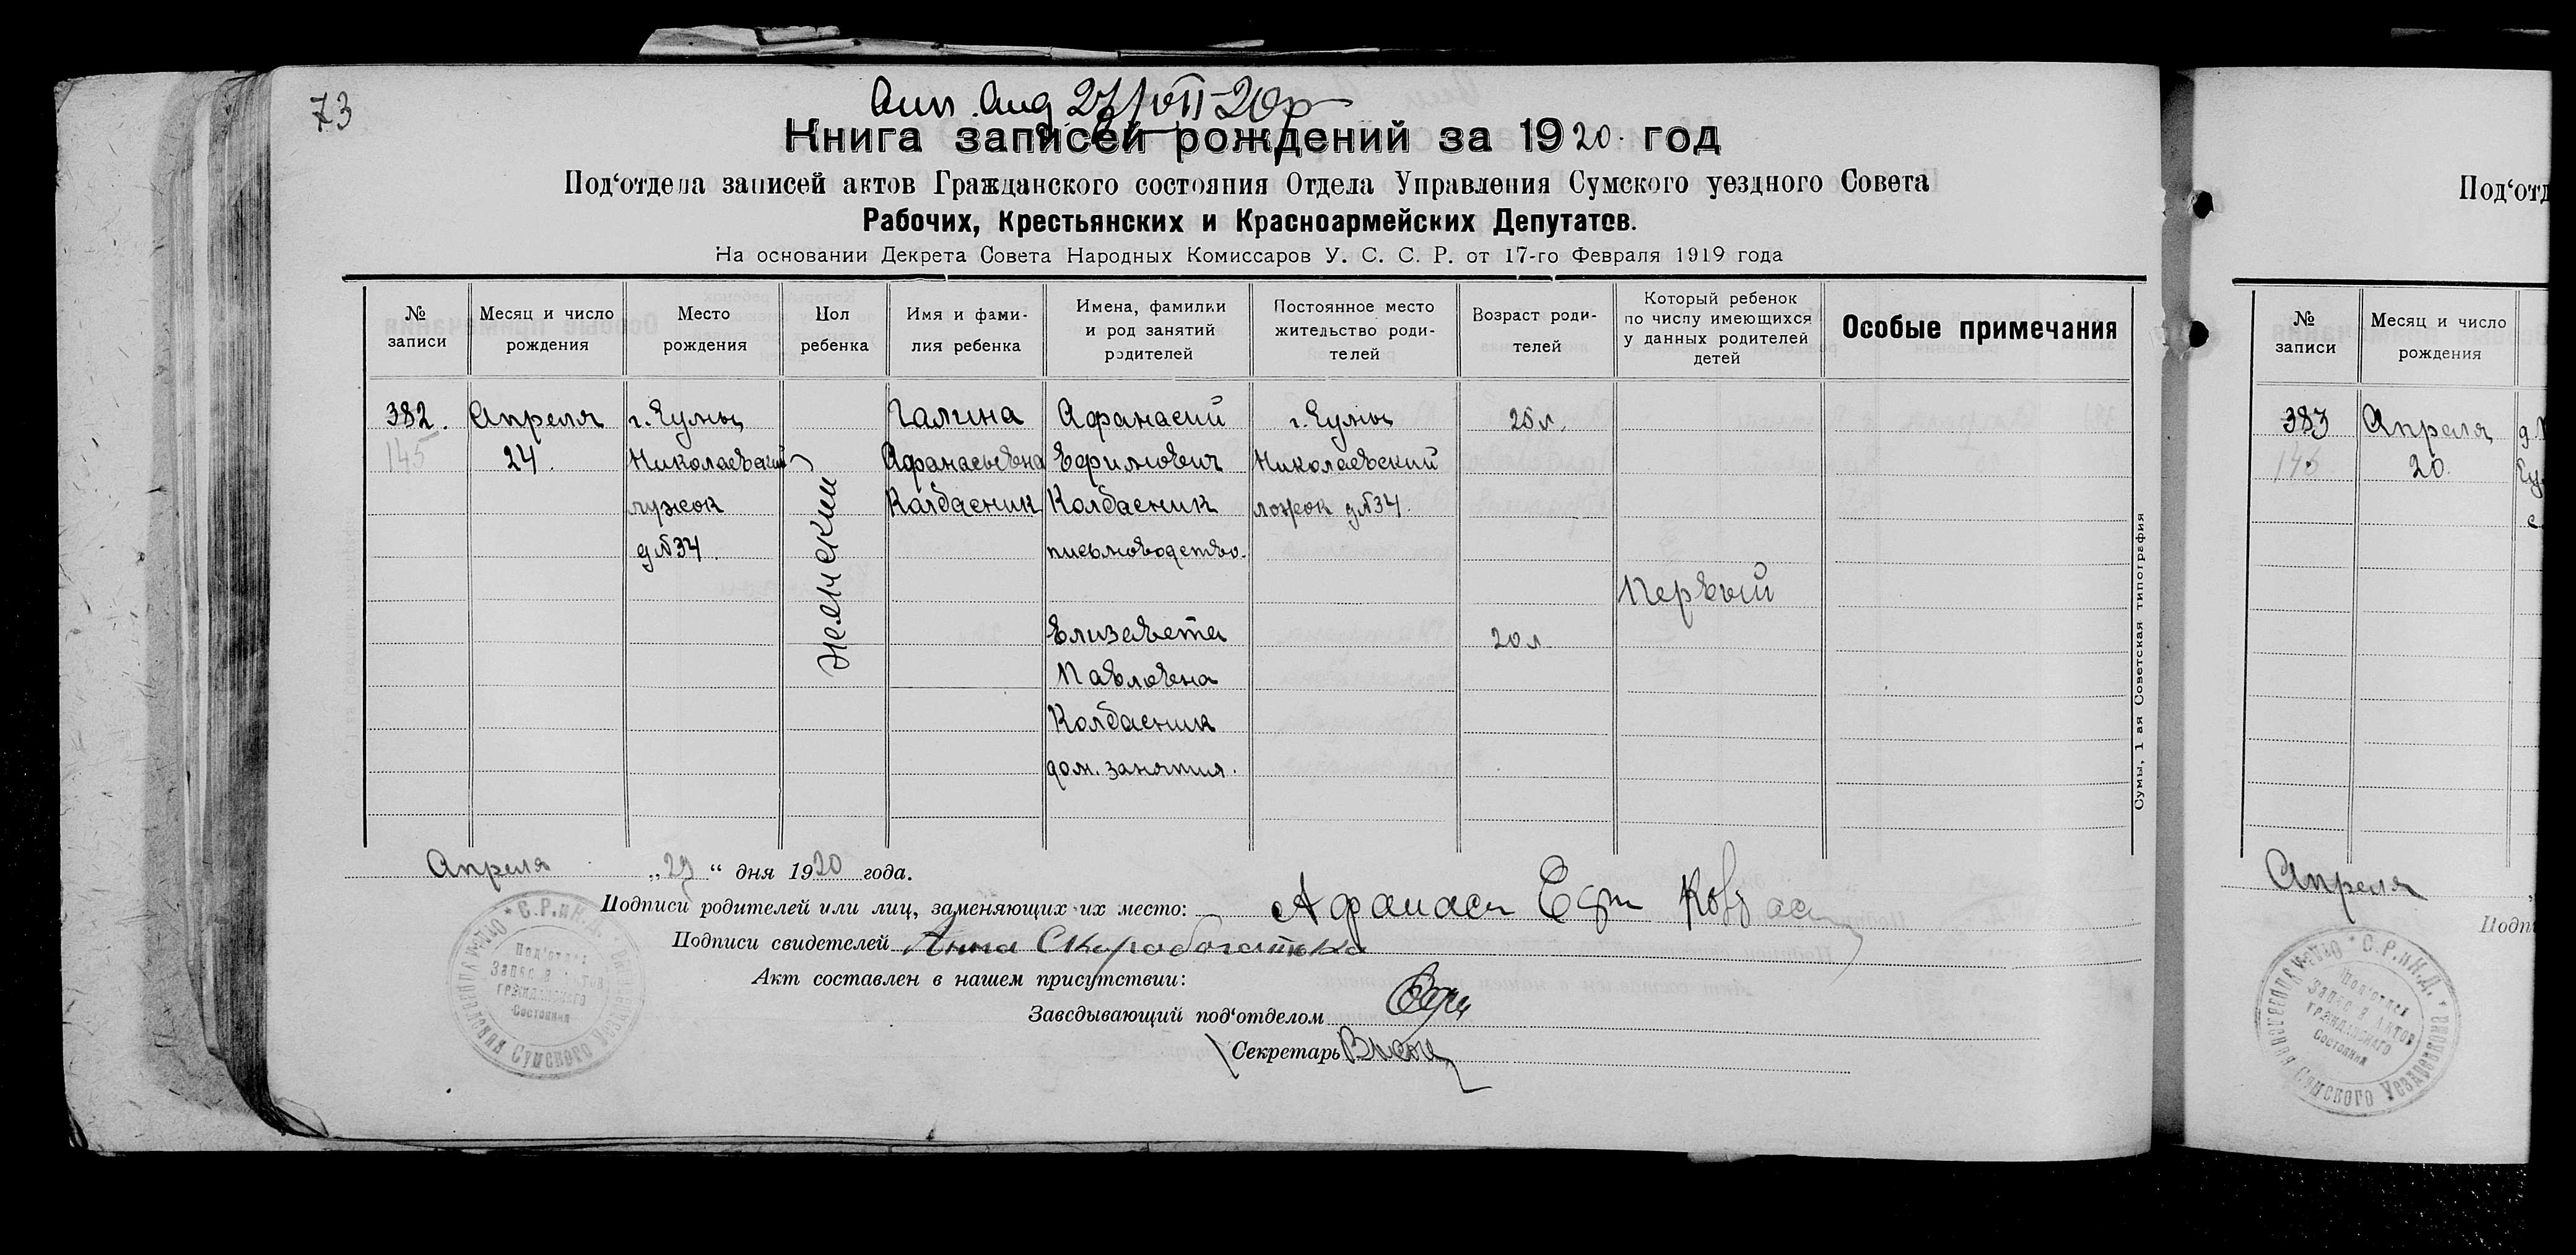 73
27/VII-20 р
Книга записей рождений за 1920. год
Под‘отдела записей актов Гражданского состояния Отдела Управления Сумского уездного Совета
Рабочих, Крестьянских и Красноармейских Депутатов.
На основании Декрета Совета Народных Комиссаров У. С. С. Р. от 17-го Февраля 1919 года
№ записи
Месяц и число рождения
Место рождения
Пол ребенка
Имя и фами-
лия ребенка
Имена, фамилии
и род занятий
родителей
Постоянное место
жительство роди-
телей
Возраст роди-
телей
Который ребенок
по числу имеющихся
у данных родителей
детей
Особые примечания
382.
145
Апреля
24.
г. Сумы,
Николаевский
лужок
д №34.
женский
Галина
Афанасьевна
Колбасник
Афанасий
Ефимович
Колбасник
письмоводство.
Елизавета
Павловна
Колбасник
дом. занятия.
г. Сумы
Николаевский
ложок д №34.
25 л.
20 л
Первый
Сумы, 1 ая Советская типография
Апреля „29“ дня 1920 года.
Подписи родителей или лиц, заменяющих их место: Афанаси Ефи
Подписи свидетелей Анна
Акт составлен в нашем присутствии:
Заведывающий под‘отделом
Секретарь
С.Р. и К.
Под‘отдел
Записи Актов
Гражданского
Состояния
Сумского
Под‘отд
№ записи
Месяц и число рождения
383
146
Апреля
20.
Апреля
Подп
С.Р. и К.Д.
Под‘отдел
Записи Актов
Гражданского
Состояния
Сумского